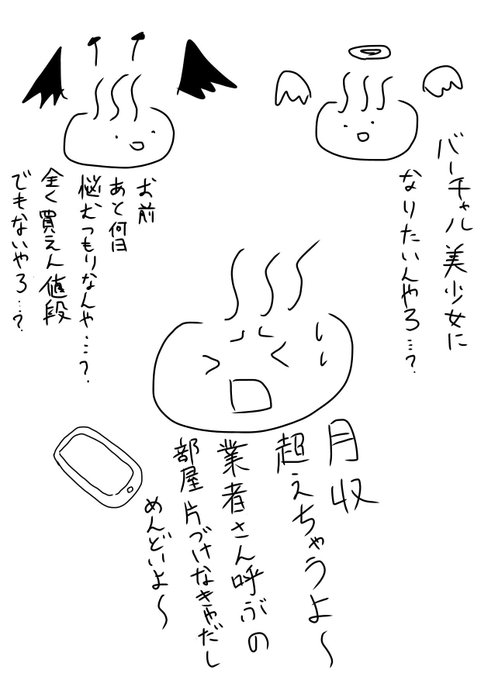 バーチャル美少女に
なりたいんやろ…?
お前
あと何日
悩むつもりなんや…?
全く買えん値段
でもないやろ…?
月収
超えちゃうよ〜
業者さん呼ぶの
部屋片づけなきゃだし
めんどいよ〜